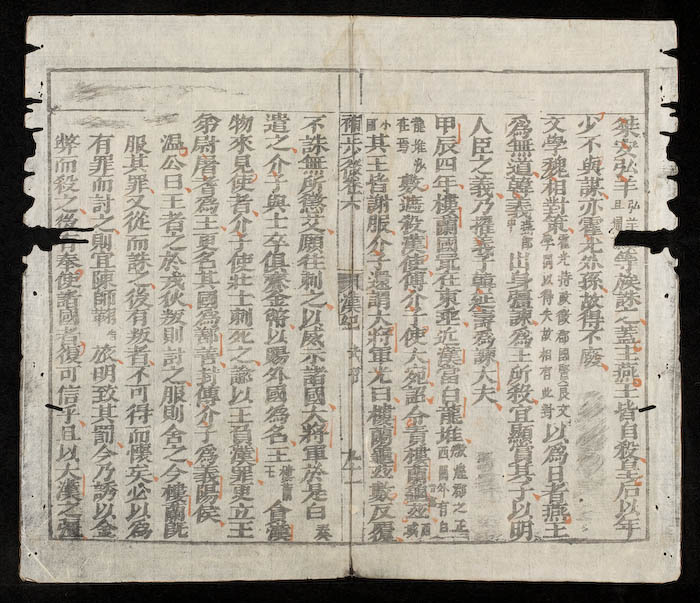 桑安弘羊弘羊等族誅之蓋主燕王皆自殺皇后以年
少不與謀亦霍光外孫故得不廢
文學魏相對策以為日者燕王
為無道韓義出身彊諫為王所殺宜顯賞其子以明
人臣之義乃擢義子韓延壽為諫大夫
甲辰四年樓蘭國最在東垂近漢當白龍堆
數遮殺漢使傅介子使大宛詔令責樓蘭龜茲
其王皆謝服介子還謂大將軍光曰樓蘭龜茲數反覆
漢紀
不誅無所懲艾願往刺之以威示諸國大將軍於是白奏
遣之介子與士卒俱齎金幣以賜外國為名王會漢
物來見使者介子使壯士刺死之諭以王負漢罪更立王
弟尉屠耆為王更名其國為鄯善封傅介子為義陽侯
溫公曰王者之於戎狄叛則討之服則舍之今樓蘭旣
服其罪又從而誅之後有叛者不可得而懷矣必以為
有罪而討之則宜陳師鞠旅明致其罰今乃誘以金
幣而殺之後奉使諸國者復可信乎且以大漢之強